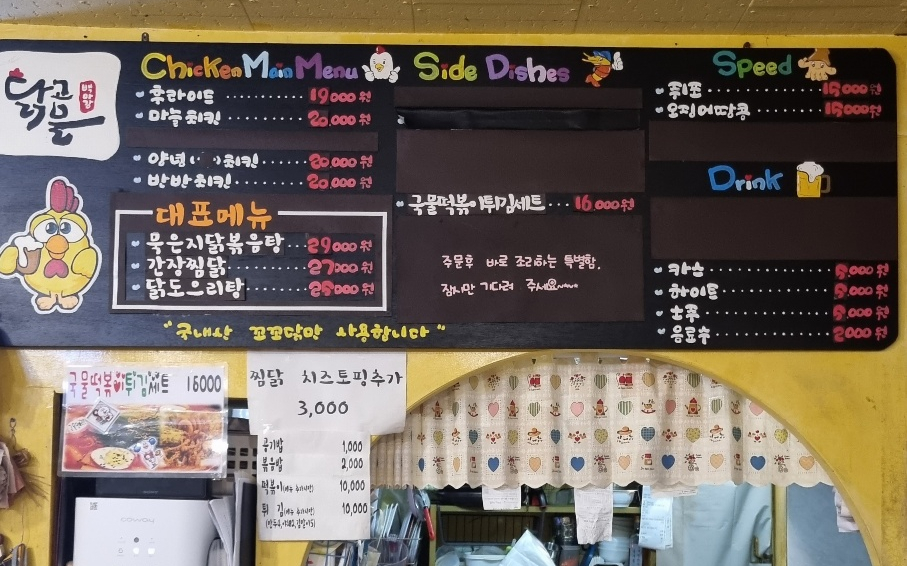 닭고을
벽마람
Chicken Main Menu
후라이드 19000 원
마늘치킨 20,000 원
양념 치킨 20000 원
반반치킨 20,000 원
대표메뉴
묵은지닭볶음탕 29000 원
간장찜닭 27000 원
닭도으리탕 25000 원
"국내산 꼬꼬닭만 사용합니다"
Side Dishes
국물떡볶이튀김세트 16000 원
주문후 바로 조리하는 특별함.
잠시만 기다려 주세요
Speed
쥐포 15,000 원
오징어땅콩 15000 원
Drink
카스 5000 원
하이트 5,000 원
소주 5000 원
음료수 2000 원
국물떡볶이튀김세트 16000
찜닭 치즈토핑추가
3,000
공기밥 1,000
볶음밥 2,000
떡볶이 10,000
튀 김 10,000
coway